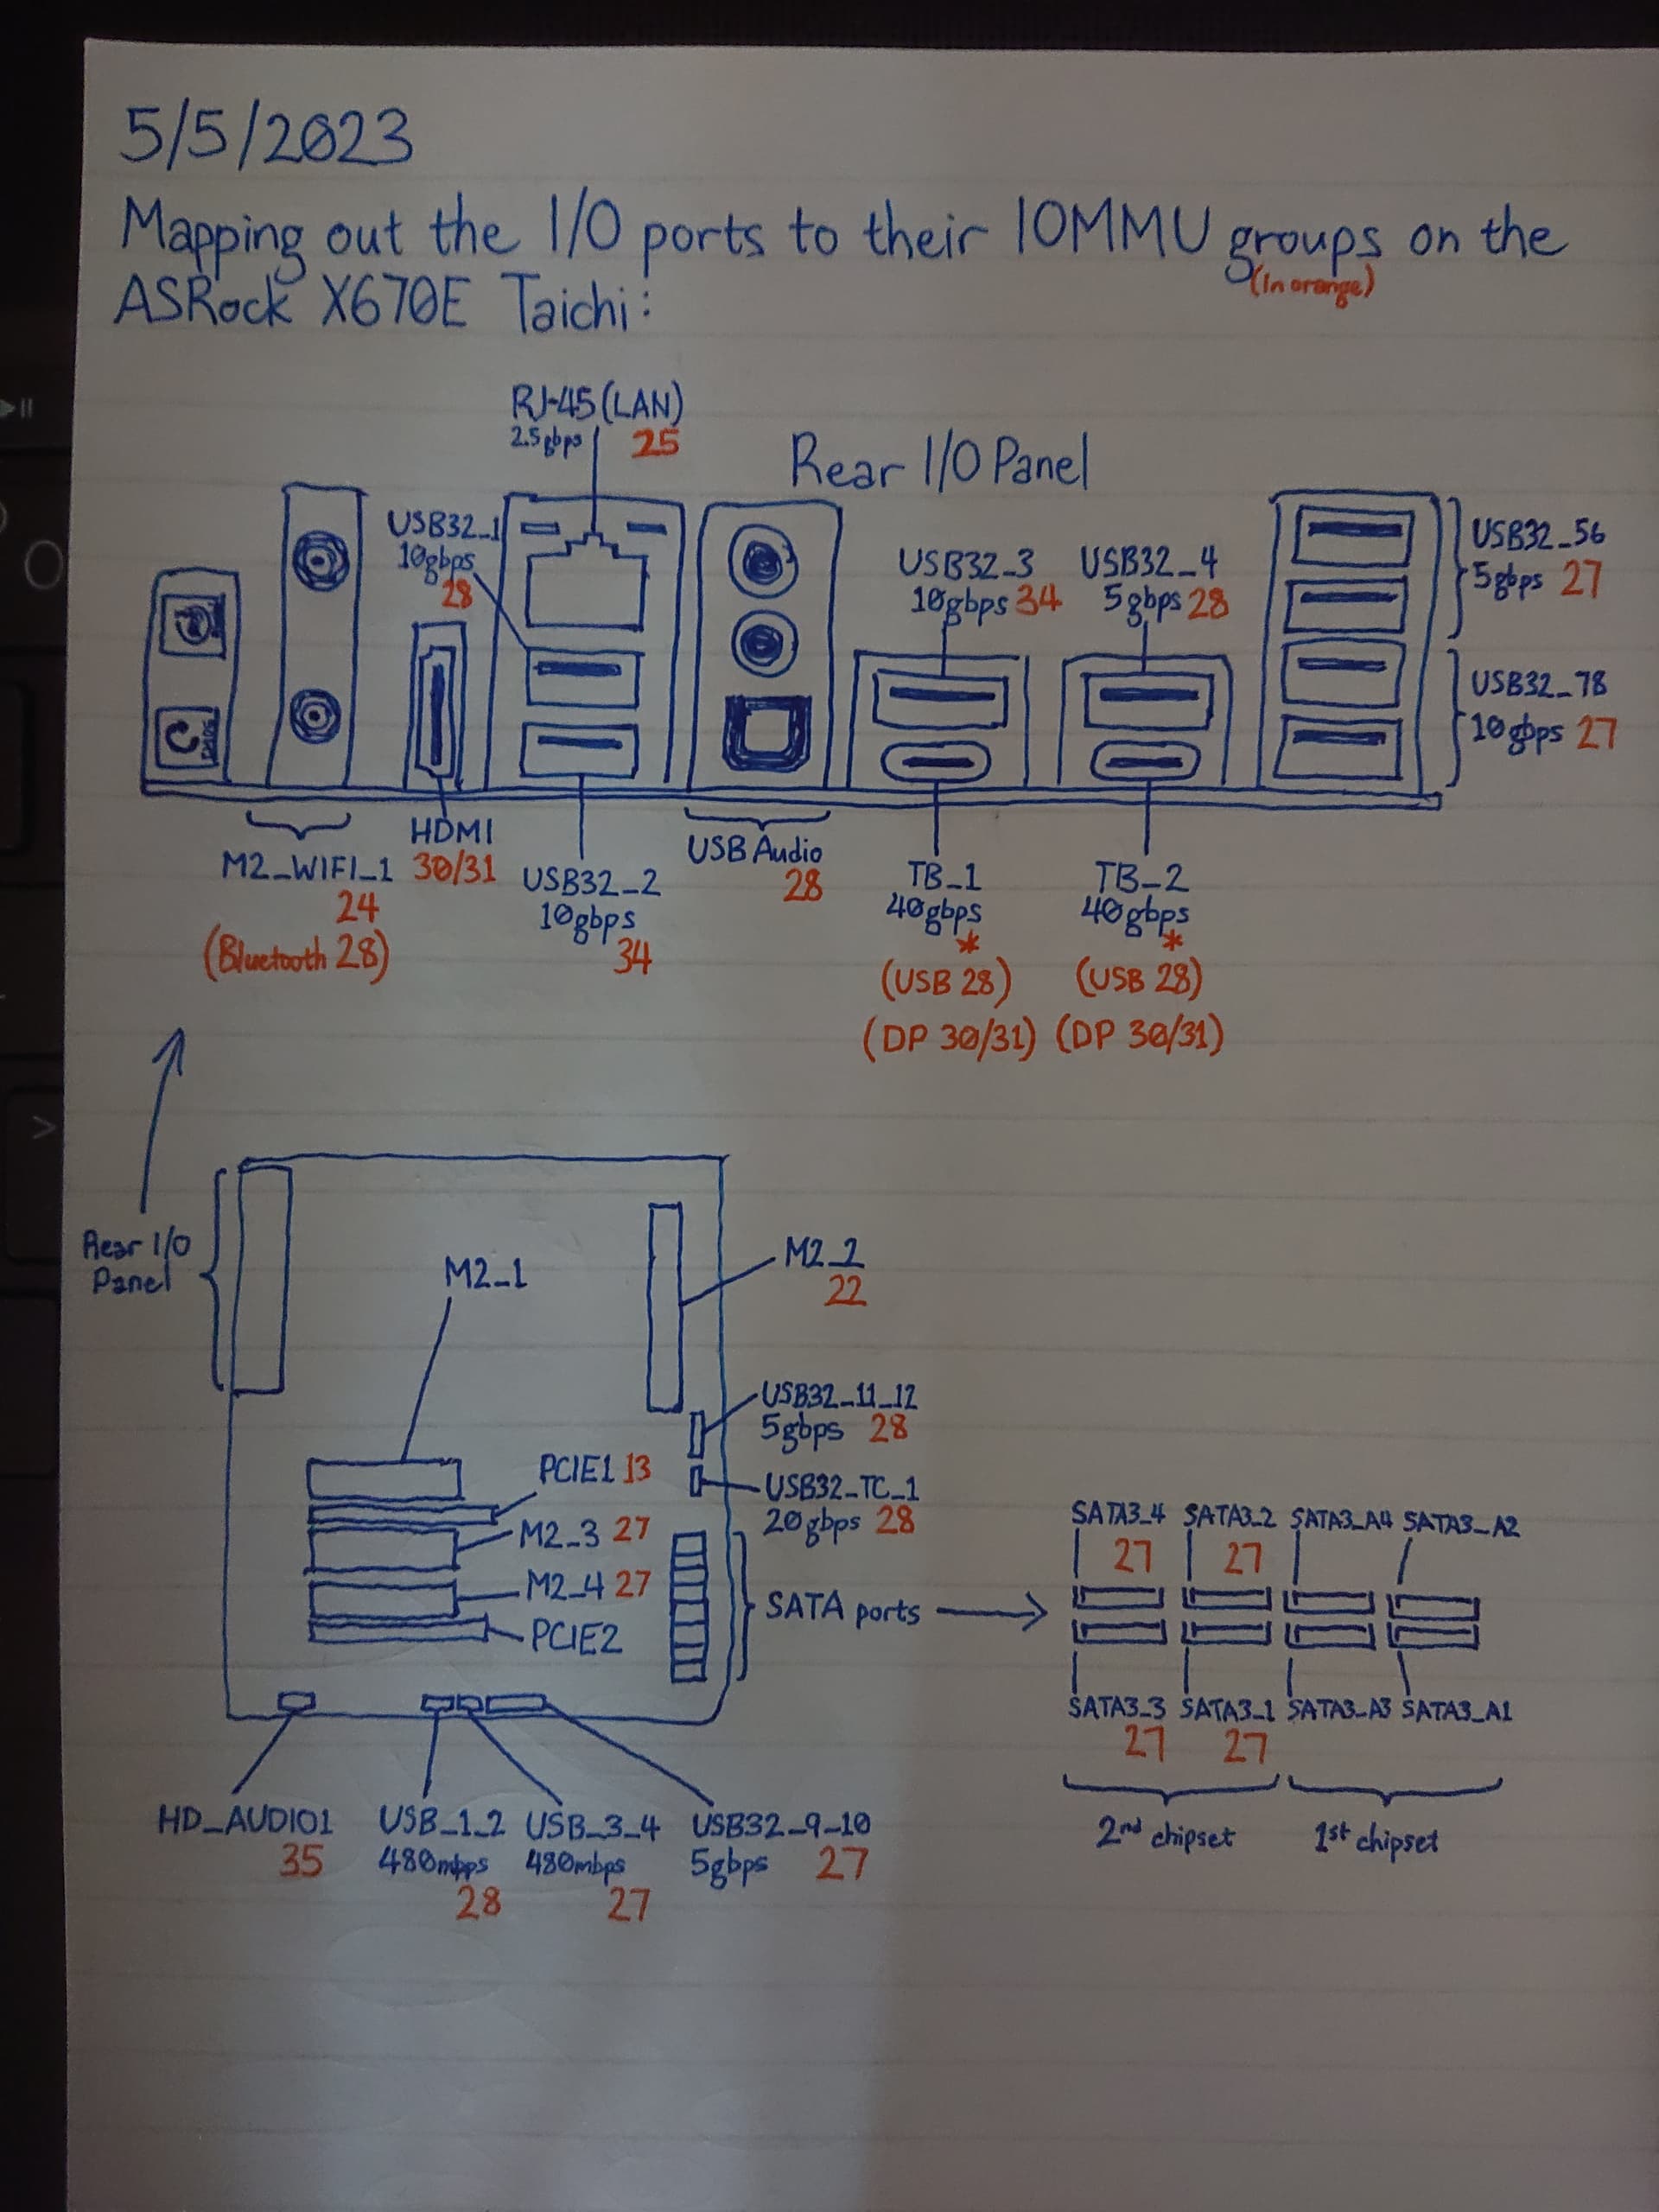 5/5/2023
Mapping out the I/O ports to their IOMMU groups on the
(In orange)
ASRock X670E Taichi:
RJ-45 (LAN)
2.5gbps 25
Rear I/O Panel
USB32_1
10gbps
28
USB32_3
10gbps 34
USB32_4
5gbps 28
USB32_56
5gbps 27
USB32_78
10gbps 27
M2_WIFI_1
24
(Bluetooth 28)
HDMI
30/31
USB32_2
10gbps
34
USB Audio
28
TB_1
40gbps
*
(USB 28)
(DP 30/31)
TB_2
40gbps
*
(USB 28)
(DP 30/31)
Rear I/O
Panel
M2_1
M2_2
22
USB32_11_12
5gbps 28
USB32_TC_1
20gbps 28
PCIE1 13
M2_3 27
M2_4 27
PCIE2
SATA ports
SATA3_4 SATA3_2 SATA3_A4 SATA3_A2
27 27
SATA3_3 SATA3_1 SATA3_A3 SATA3_A1
27 27
2nd chipset 1st chipset
HD_AUDIO1
35
USB_1_2
480mbps
28
USB_3_4
480mbps
27
USB32_9_10
5gbps 27